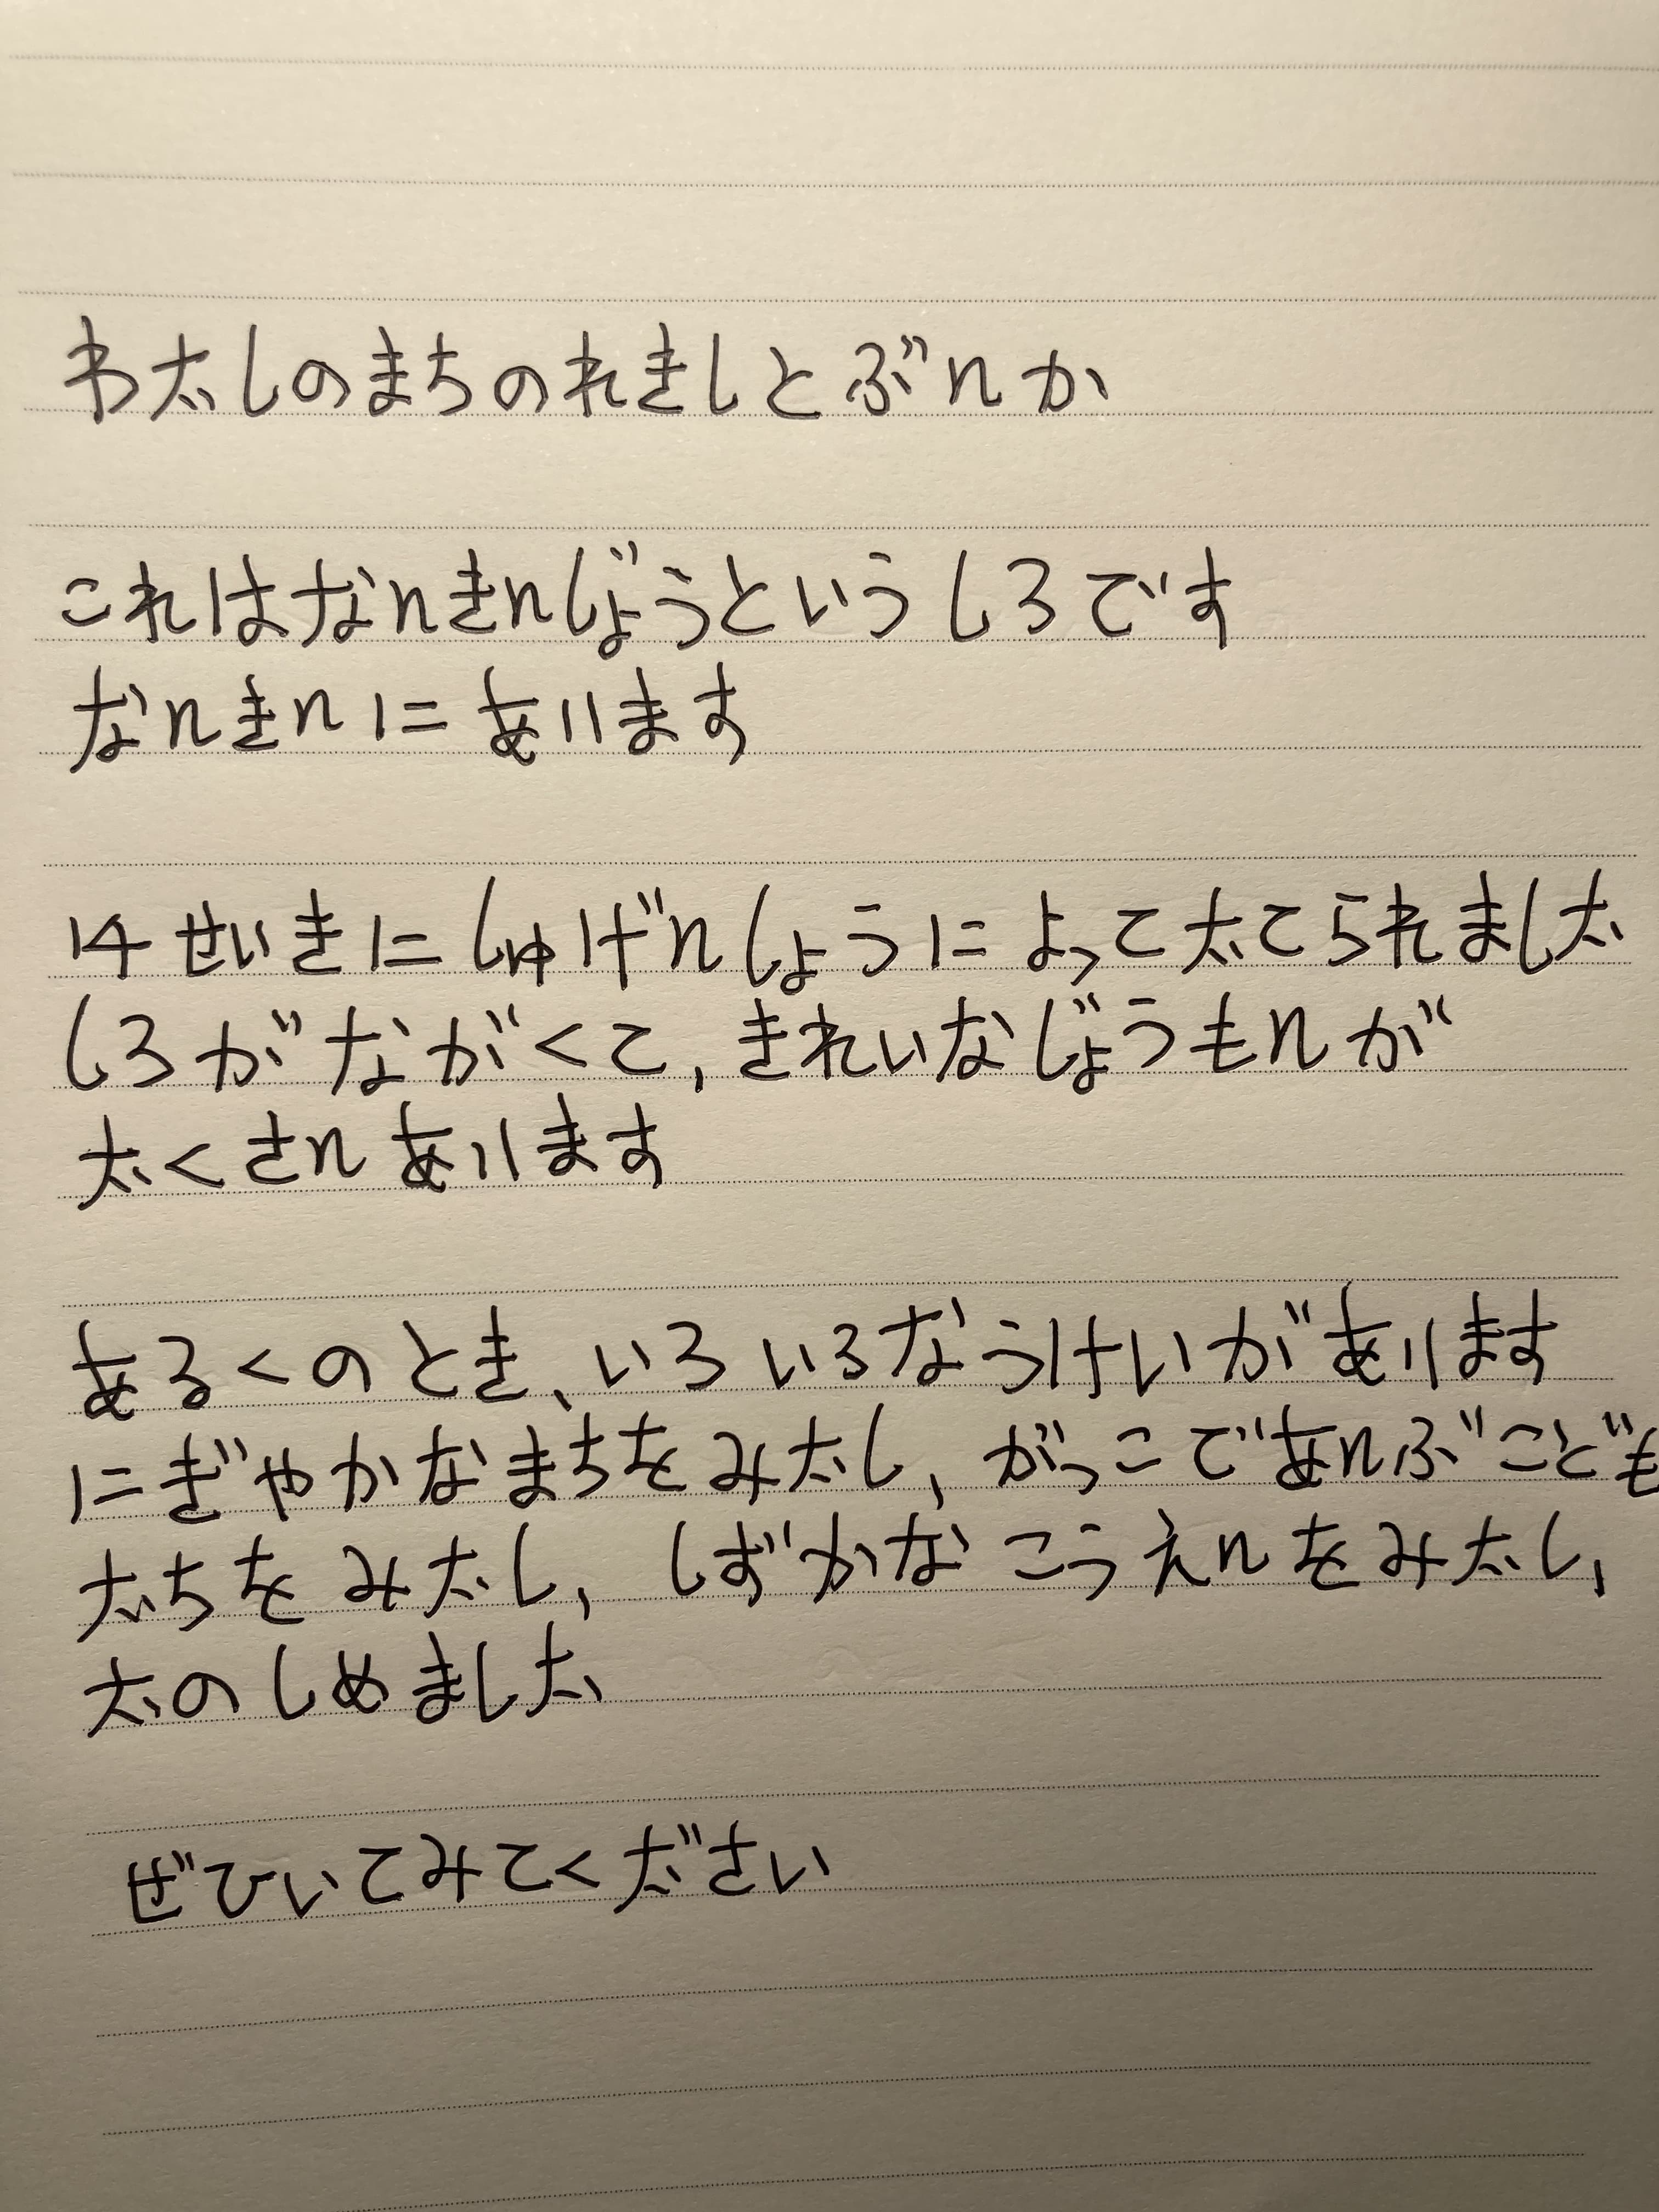 わたしのまちのれきしとぶんか
これはなんきんじょうというしろです
なんきんにあります
14せいきにしゅげんしょうによってたてられました
しろがながくて,きれいなじょうもんが
たくさんあります
あるくのとき、いろいろなうけいがあります
にぎやかなまちをみたし,がっこであんぶこども
たちをみたし,しずかなこうえんをみたし,
たのしめました
ぜひいてみてください